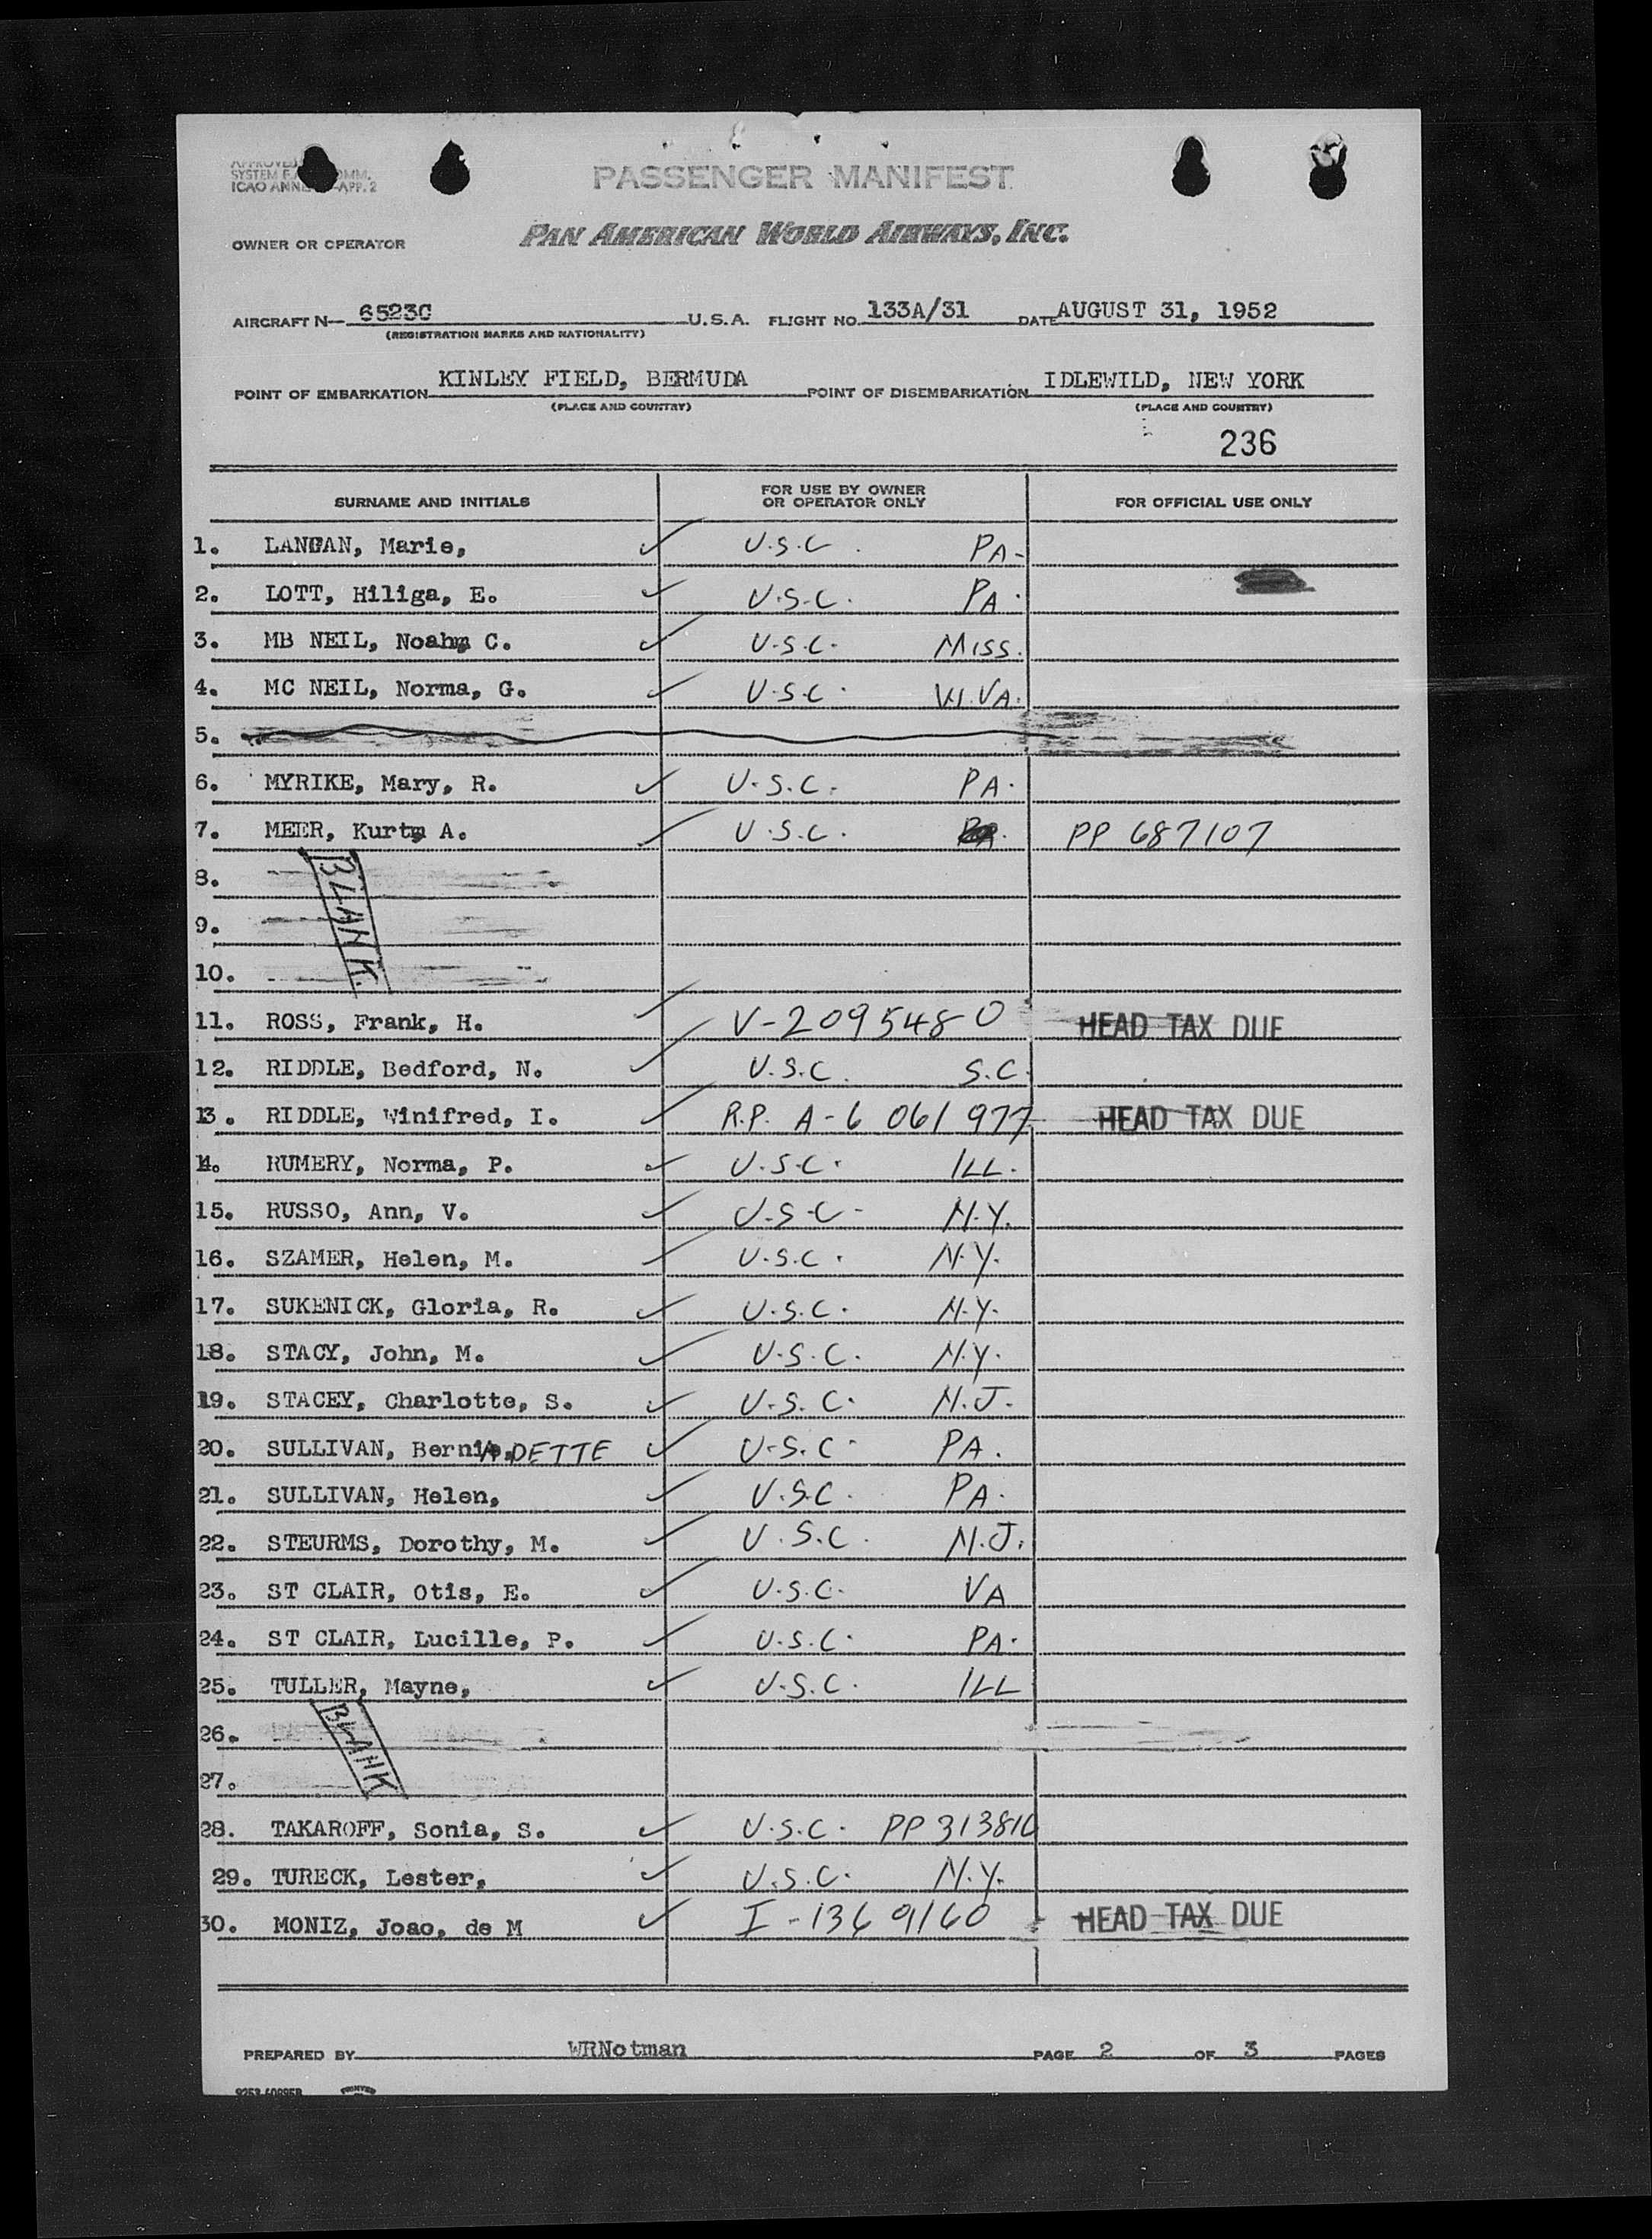 APPROVED
SYSTEM COMM.
ICAO APP. 2
PASSENGER MANIFEST
OWNER OR OPERATOR PAN AMERICAN WORLD AIRWAYS, INC.
AIRCRAFT N- 6523C U.S.A. FLIGHT NO. 133A/31 DATE AUGUST 31, 1952
(REGISTRATION MARKS AND NATIONALITY)
POINT OF EMBARKATION KINLEY FIELD, BERMUDA POINT OF DISEMBARKATION IDLEWILD, NEW YORK
(PLACE AND COUNTRY) (PLACE AND COUNTRY)
236
SURNAME AND INITIALS FOR USE BY OWNER OR OPERATOR ONLY FOR OFFICIAL USE ONLY
1. Marie, U.S.C. PA.
2. LOTT, Hiliga, E. U.S.C. PA.
3. MB NEIL, Noah, C. U.S.C. MISS.
4. MC NEIL, Norma, G. U.S.C. W.VA.
5.
6. MYRIKE, Mary, R. U.S.C. PA.
7. MEER, Kurt, A. U.S.C. PP 687107
8.
9. BLANK.
10.
11. ROSS, Frank, H. V-2095480 HEAD TAX DUE
12. RIDDLE, Bedford, N. U.S.C. S.C.
13. RIDDLE, Winifred, I. R.P. A-6 061 977 HEAD TAX DUE
14. RUMERY, Norma, P. U.S.C. ILL.
15. RUSSO, Ann, V. U.S.C. N.Y.
16. SZAMER, Helen, M. U.S.C. N.Y.
17. SUKENICK, Gloria, R. U.S.C. N.Y.
18. STACY, John, M. U.S.C. N.Y.
19. STACEY, Charlotte, S. U.S.C. N.J.
20. SULLIVAN, BernADETTE U.S.C. PA.
21. SULLIVAN, Helen, U.S.C. PA.
22. STEURMS, Dorothy, M. U.S.C. N.J.
23. ST CLAIR, Otis, E. U.S.C. VA
24. ST CLAIR, Lucille, P. U.S.C. PA.
25. TULLER, Mayne, U.S.C. ILL
26. BLANK
27.
28. TAKAROFF, Sonia, S. U.S.C. PP 313816
29. TURECK, Lester, U.S.C. N.Y.
30. MONIZ, Joao, de M I-1369160 HEAD TAX DUE
PREPARED BY WRNotman PAGE 2 OF 3 PAGES